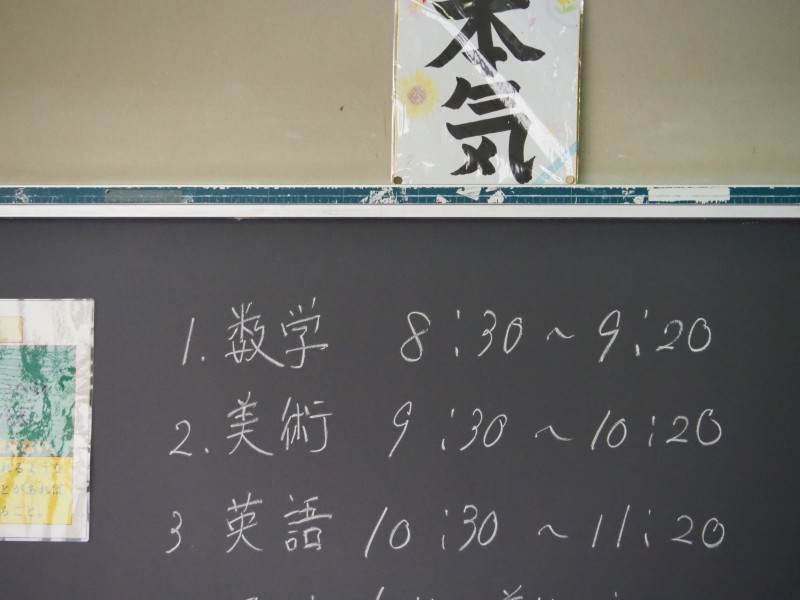 本気
1. 数学 8:30 ～ 9:20
2. 美術 9:30 ～ 10:20
3 英語 10:30 ～ 11:20
とがあれば